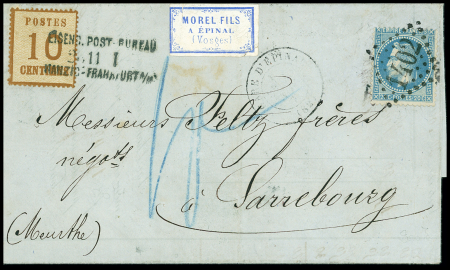 POSTES
10
CENT
EISENB. POST-BUREAU
11 I
DANZIG-FRANKFURT a/M
MOREL FILS
A ÉPINAL
(Vosges)
D'ÉPINAL
Messieurs Feltz frères
négots
à Sarrebourg
(Meurthe)